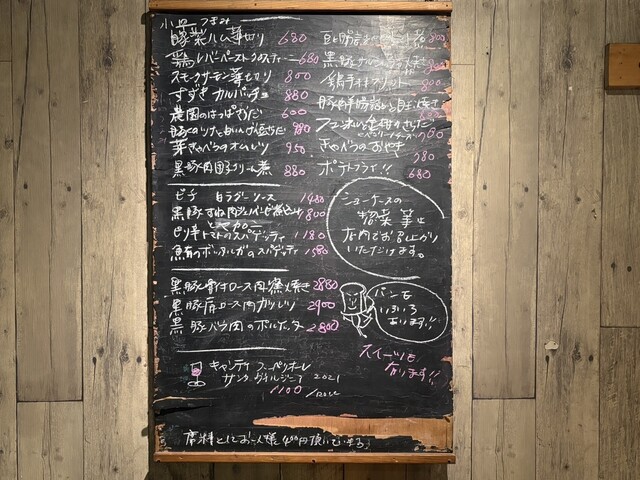 小皿 つまみ
豚菜ハム薄切り 680
鶏レバーペーストクロスティーニ 680
スモークサーモン薄切り 800
すずき カルパッチョ 880
農園のはっぱさらだ 600
950
葉きゃべつのオムレツ 950
黒豚肉団子クリーム煮 880
800
黒豚
鶏手羽 フリット 800
フェンネルと サラダ 780
きゃべつのおやき 580
ポテトフライ!! 680
ピチ 白ラグーソース 1480
黒豚すね肉 煮込み 1800
ピリ辛トマトのスパゲッティ 1180
鮪のボッタルガのスパゲッティ 1580
黒豚骨付ロース肉窯焼き 2880
黒豚肩ロース肉カツレツ 2900
黒豚バラ肉のポルケッタ 2800
ショーケースの
惣菜等は
店内でお召し上がり
いただけます。
パンも
いろいろ
あります!!
スイーツも
有ります!!
キャンティ スーペリオーレ
サンタ ヴィルジニア 2021
1100
席料としてお一人様400円頂いています。